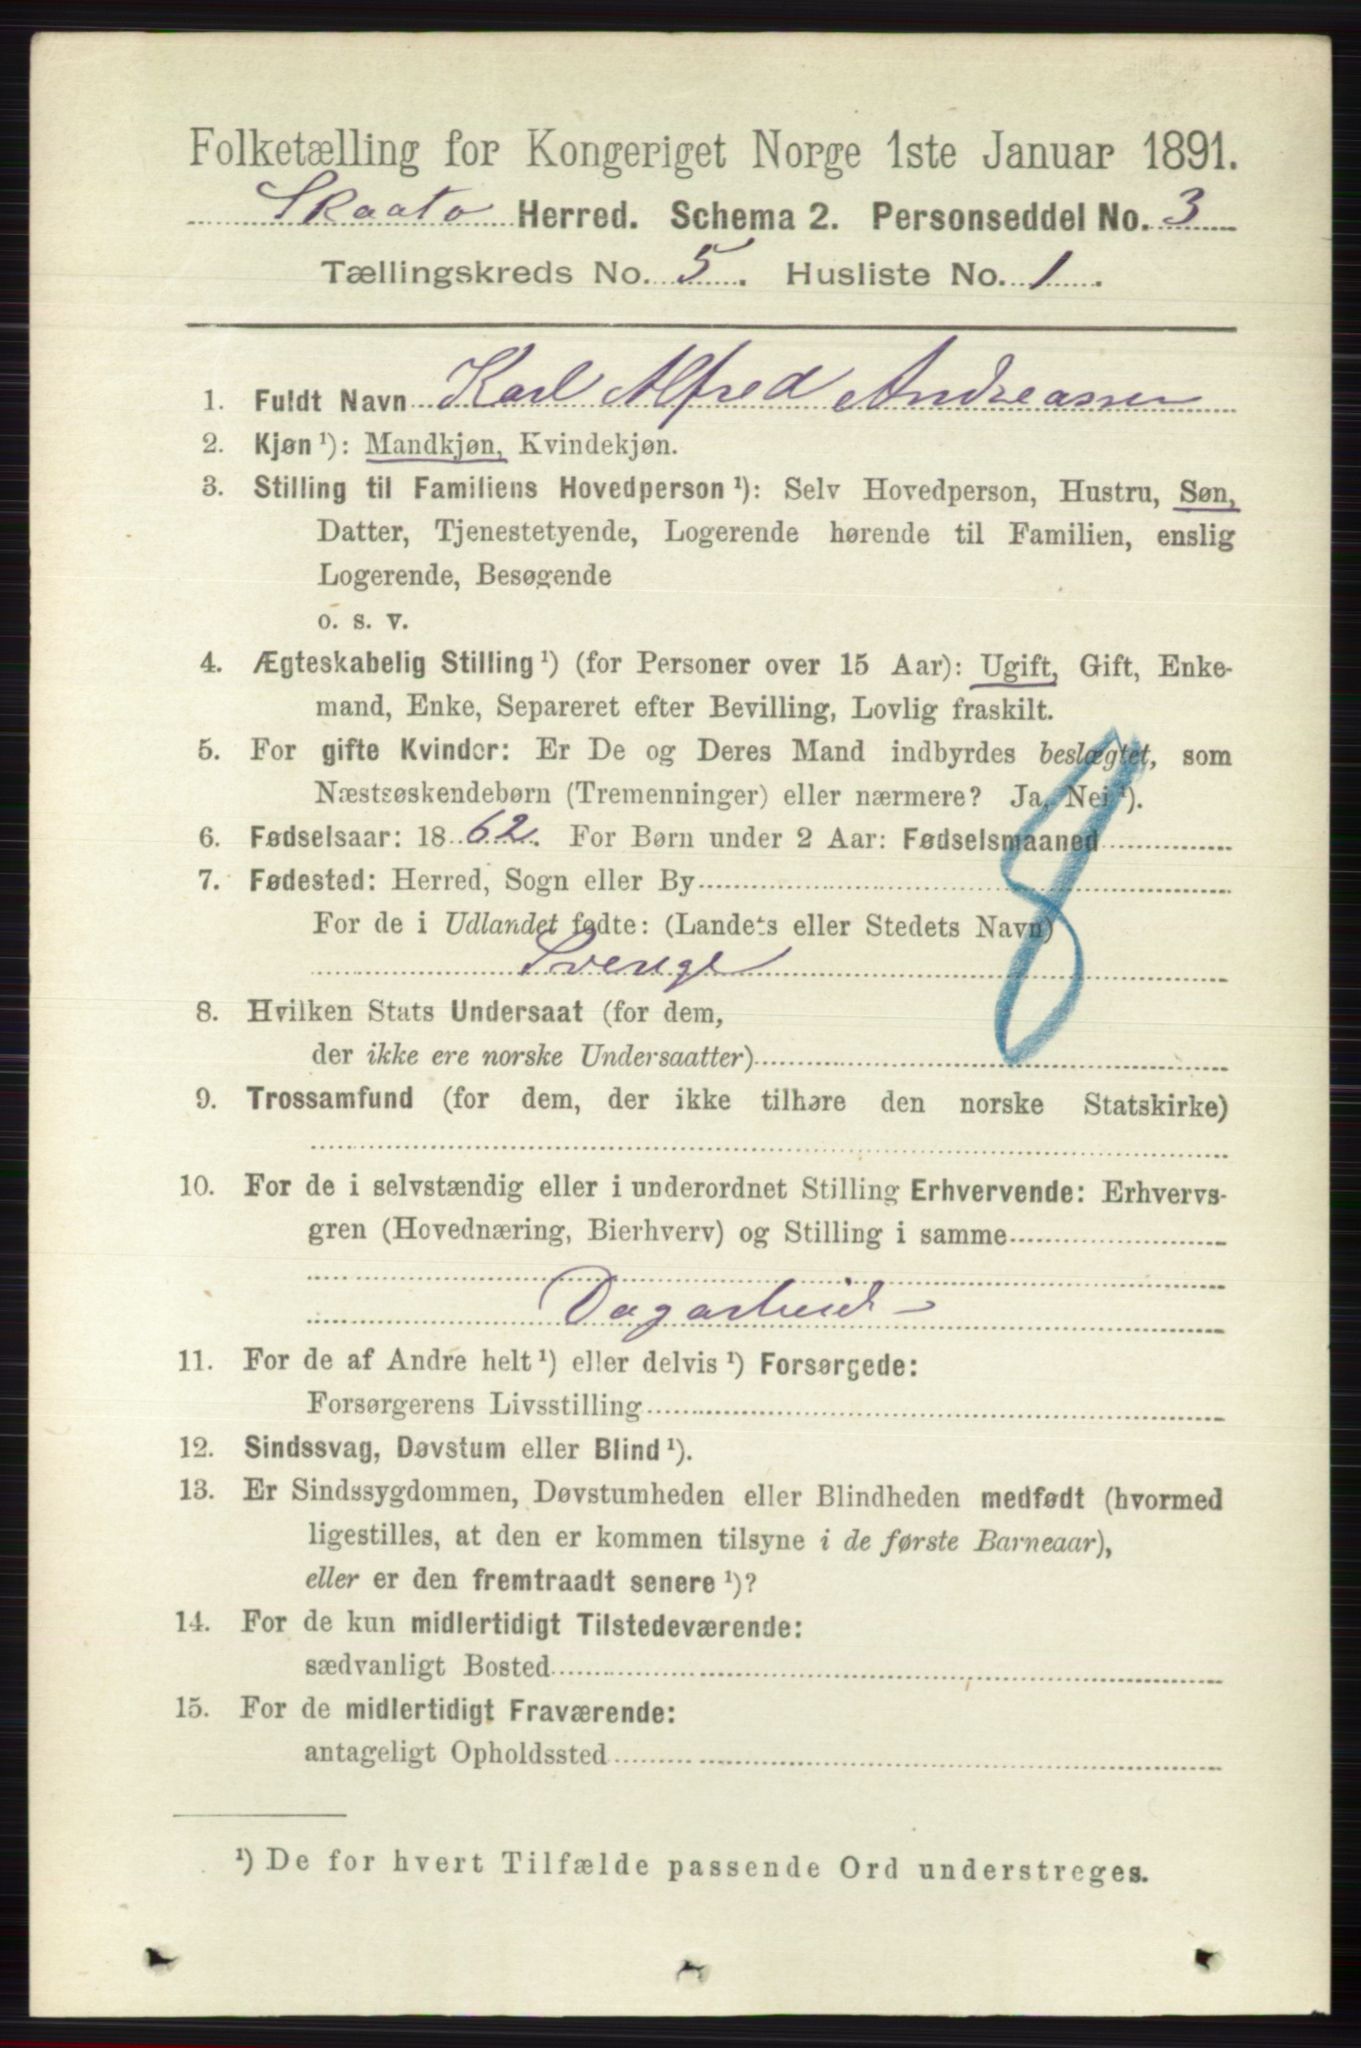 Folketælling for Kongeriget Norge 1ste Januar 1891.
Skaatø Herred. Schema 2. Personseddel No. 3
Tællingskreds No. 5. Husliste No. 1.
1. Fuldt Navn Karl Alfred Andreassen
2. Kjøn ¹): Mandkjøn, Kvindekjøn.
3. Stilling til Familiens Hovedperson ¹): Selv Hovedperson, Hustru, Søn,
Datter, Tjenestetyende, Logerende hørende til Familien, enslig
Logerende, Besøgende
o. s. v.
4. Ægteskabelig Stilling ¹) (for Personer over 15 Aar): Ugift, Gift, Enke-
mand, Enke, Separeret efter Bevilling, Lovlig fraskilt.
5. For gifte Kvinder: Er De og Deres Mand indbyrdes beslægtet, som
Næstsøskendebørn (Tremenninger) eller nærmere? Ja, Nei ¹).
6. Fødselsaar: 1862. For Børn under 2 Aar: Fødselsmaaned
7. Fødested: Herred, Sogn eller By
For de i Udlandet fødte: (Landets eller Stedets Navn)
Sverige
8
8. Hvilken Stats Undersaat (for dem,
der ikke ere norske Undersaatter)
9. Trossamfund (for dem, der ikke tilhøre den norske Statskirke)
10. For de i selvstændig eller i underordnet Stilling Erhvervende: Erhvervs-
gren (Hovednæring, Bierhverv) og Stilling i samme
Dagarbeid
11. For de af Andre helt ¹) eller delvis ¹) Forsørgede:
Forsørgerens Livsstilling
12. Sindssvag, Døvstum eller Blind ¹).
13. Er Sindssygdommen, Døvstumheden eller Blindheden medfødt (hvormed
ligestilles, at den er kommen tilsyne i de første Barneaar),
eller er den fremtraadt senere ¹)?
14. For de kun midlertidigt Tilstedeværende:
sædvanligt Bosted
15. For de midlertidigt Fraværende:
antageligt Opholdssted
¹) De for hvert Tilfælde passende Ord understreges.